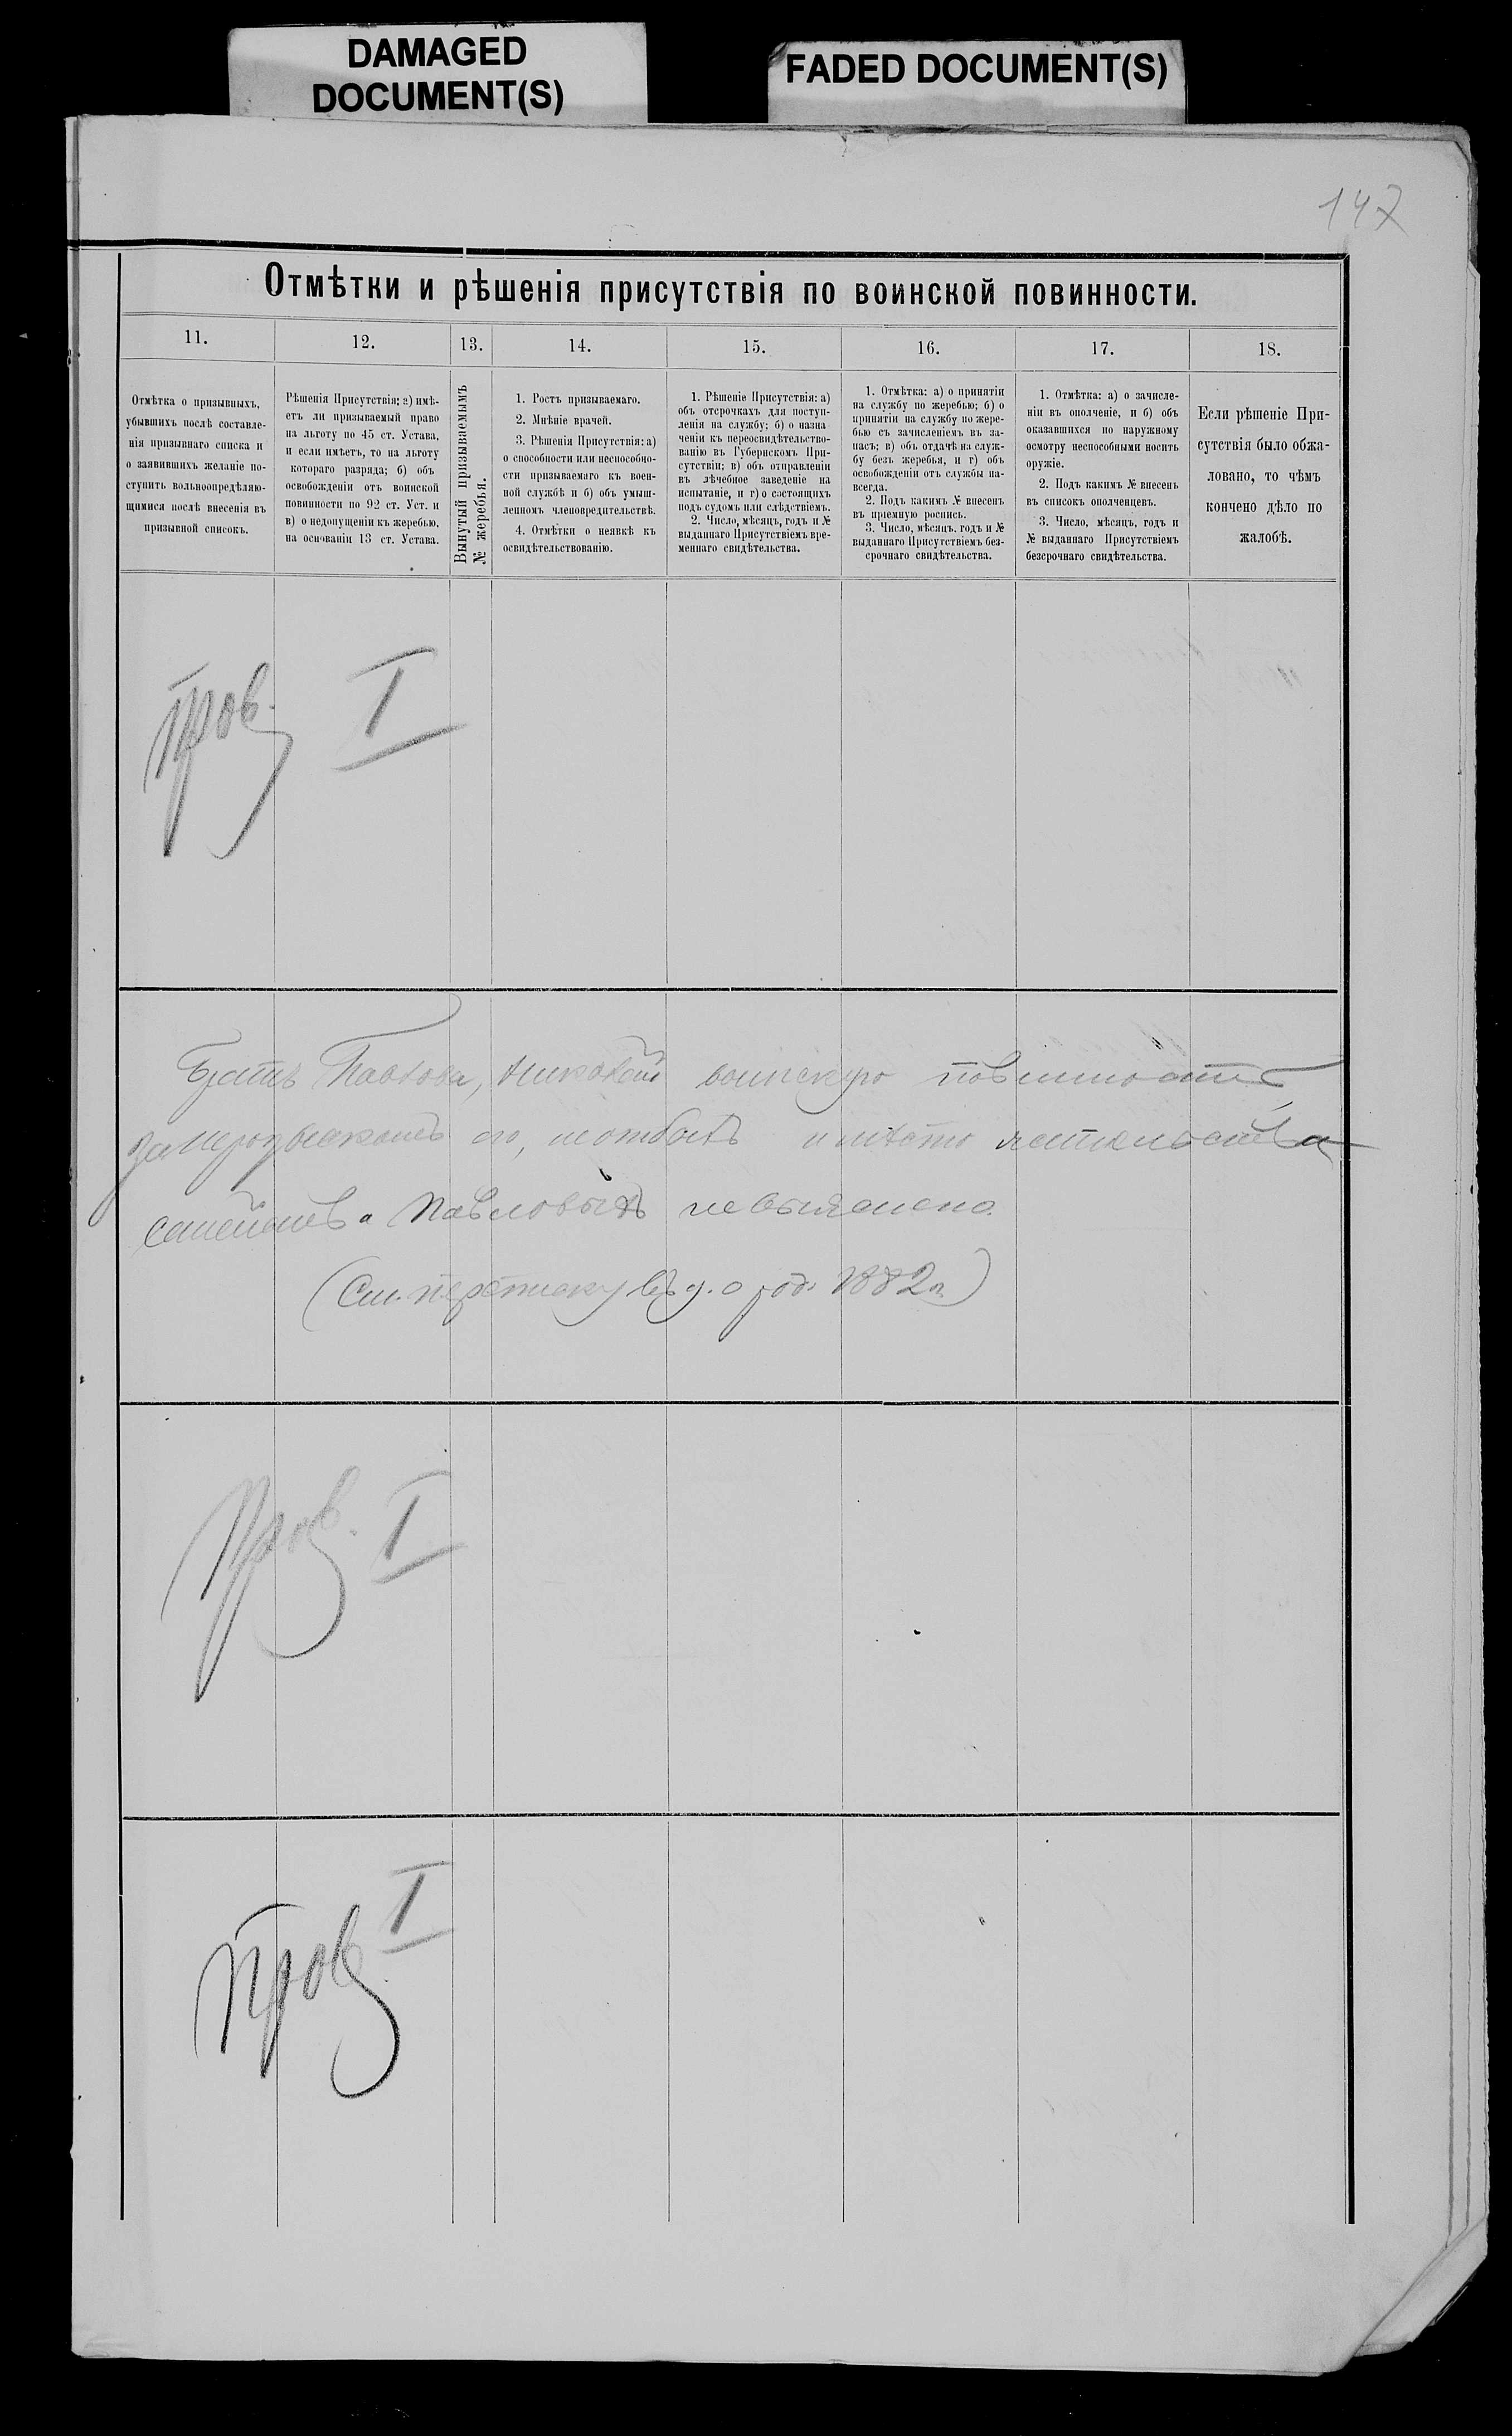 DAMAGED
DOCUMENT(S)
FADED DOCUMENT(S)
147
Отмѣтки и рѣшенія присутствія по воинской повинности.
11.
12.
13.
14.
15.
16.
17.
18.
Отмѣтка о призывныхъ,
убывшихъ послѣ составле-
нія призывнаго списка и
о заявившихъ желаніе по-
ступить вольноопредѣляю-
щимися послѣ внесенія въ
призывной списокъ.
Рѣшенія Присутствія; а) имѣ-
етъ ли призываемый право
на льготу по 45 ст. Устава,
и если имѣетъ, то на льготу
котораго разряда; б) объ
освобожденіи отъ воинской
повинности по 92 ст. Уст. и
в) о недопущеніи къ жеребью,
на основаніи 13 ст. Устава.
Вынутый призываемымъ
№ жеребья.
1. Ростъ призываемаго.
2. Мнѣніе врачей.
3. Рѣшенія Присутствія: а)
о способности или неспособно-
сти призываемаго къ воен-
ной службѣ и б) объ умыш-
ленномъ членовредительствѣ.
4. Отмѣтки о неявкѣ къ
освидѣтельствованію.
1. Рѣшеніе Присутствія: а)
объ отсрочкахъ для поступ-
ленія на службу; б) о назна
ченіи къ переосвидѣтельство-
ванію въ Губернскомъ При-
сутствіи; в) объ отправленіи
въ лѣчебное заведеніе на
испытаніе, и г) о состоящихъ
подъ судомъ или слѣдствіемъ.
2. Число, мѣсяцъ, годъ и №
выданнаго Присутствіемъ вре-
меннаго свидѣтельства.
1. Отмѣтка: а) о принятіи
на службу по жеребью; б) о
принятіи на службу по жере-
бью съ зачисленіемъ въ за-
пасъ; в) объ отдачѣ на служ-
бу безъ жеребья, и г) объ
освобожденіи отъ службы на-
всегда.
2. Подъ какимъ № внесенъ
въ пріемную роспись.
3. Число, мѣсяцъ, годъ и №
выданнаго Присутствіемъ без-
срочнаго свидѣтельства.
1. Отмѣтка: а) о зачисле-
ніи въ ополченіе, и б) объ
оказавшихся по наружному
осмотру неспособными носить
оружіе.
2. Подъ какимъ № внесенъ
въ списокъ ополченцевъ.
3. Число, мѣсяцъ, годъ и
№ выданнаго Присутствіемъ
безсрочнаго свидѣтельства.
Если рѣшеніе При-
сутствія было обжа-
ловано, то чѣмъ
кончено дѣло по
жалобѣ.
Пров. I
Братъ Павлова, Николай воинскую повинность
за нерозыскомъ его, не отбылъ и мѣсто жительства
семейства Павловыхъ не выяснено.
(См. переписку въ д. о 1882 г.)
Пров. I
Пров I